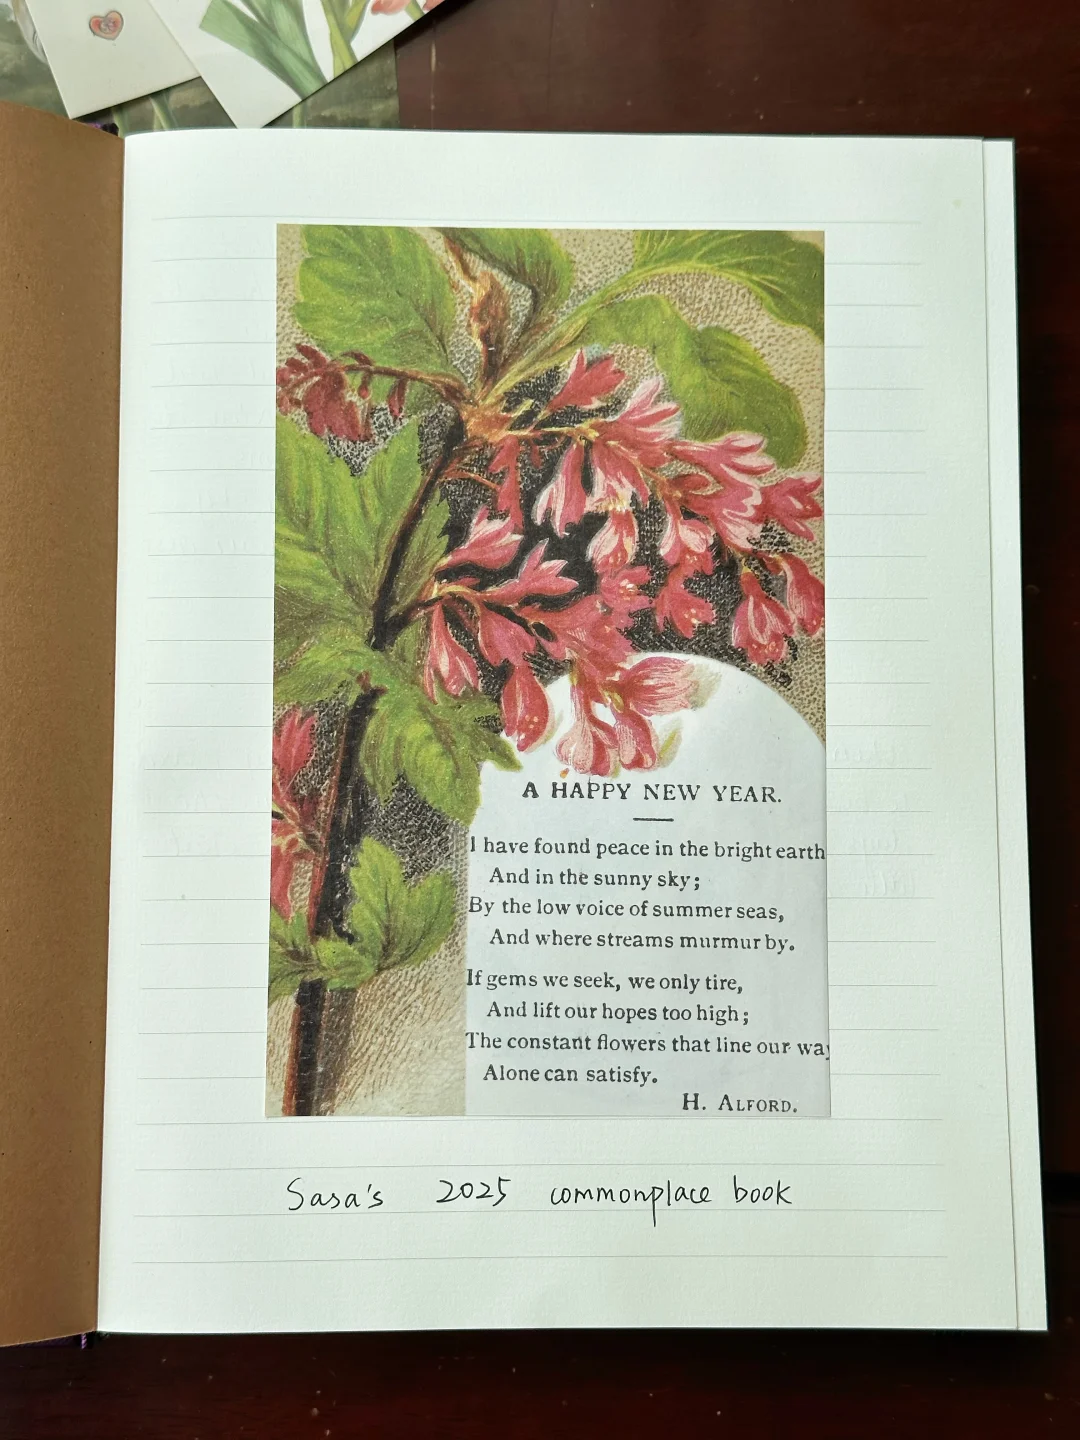 A HAPPY NEW YEAR.
I have found peace in the bright earth
And in the sunny sky;
By the low voice of summer seas,
And where streams murmur by.
If gems we seek, we only tire,
And lift our hopes too high;
The constant flowers that line our way
Alone can satisfy.
H. ALFORD.
Sasa's 2025 commonplace book